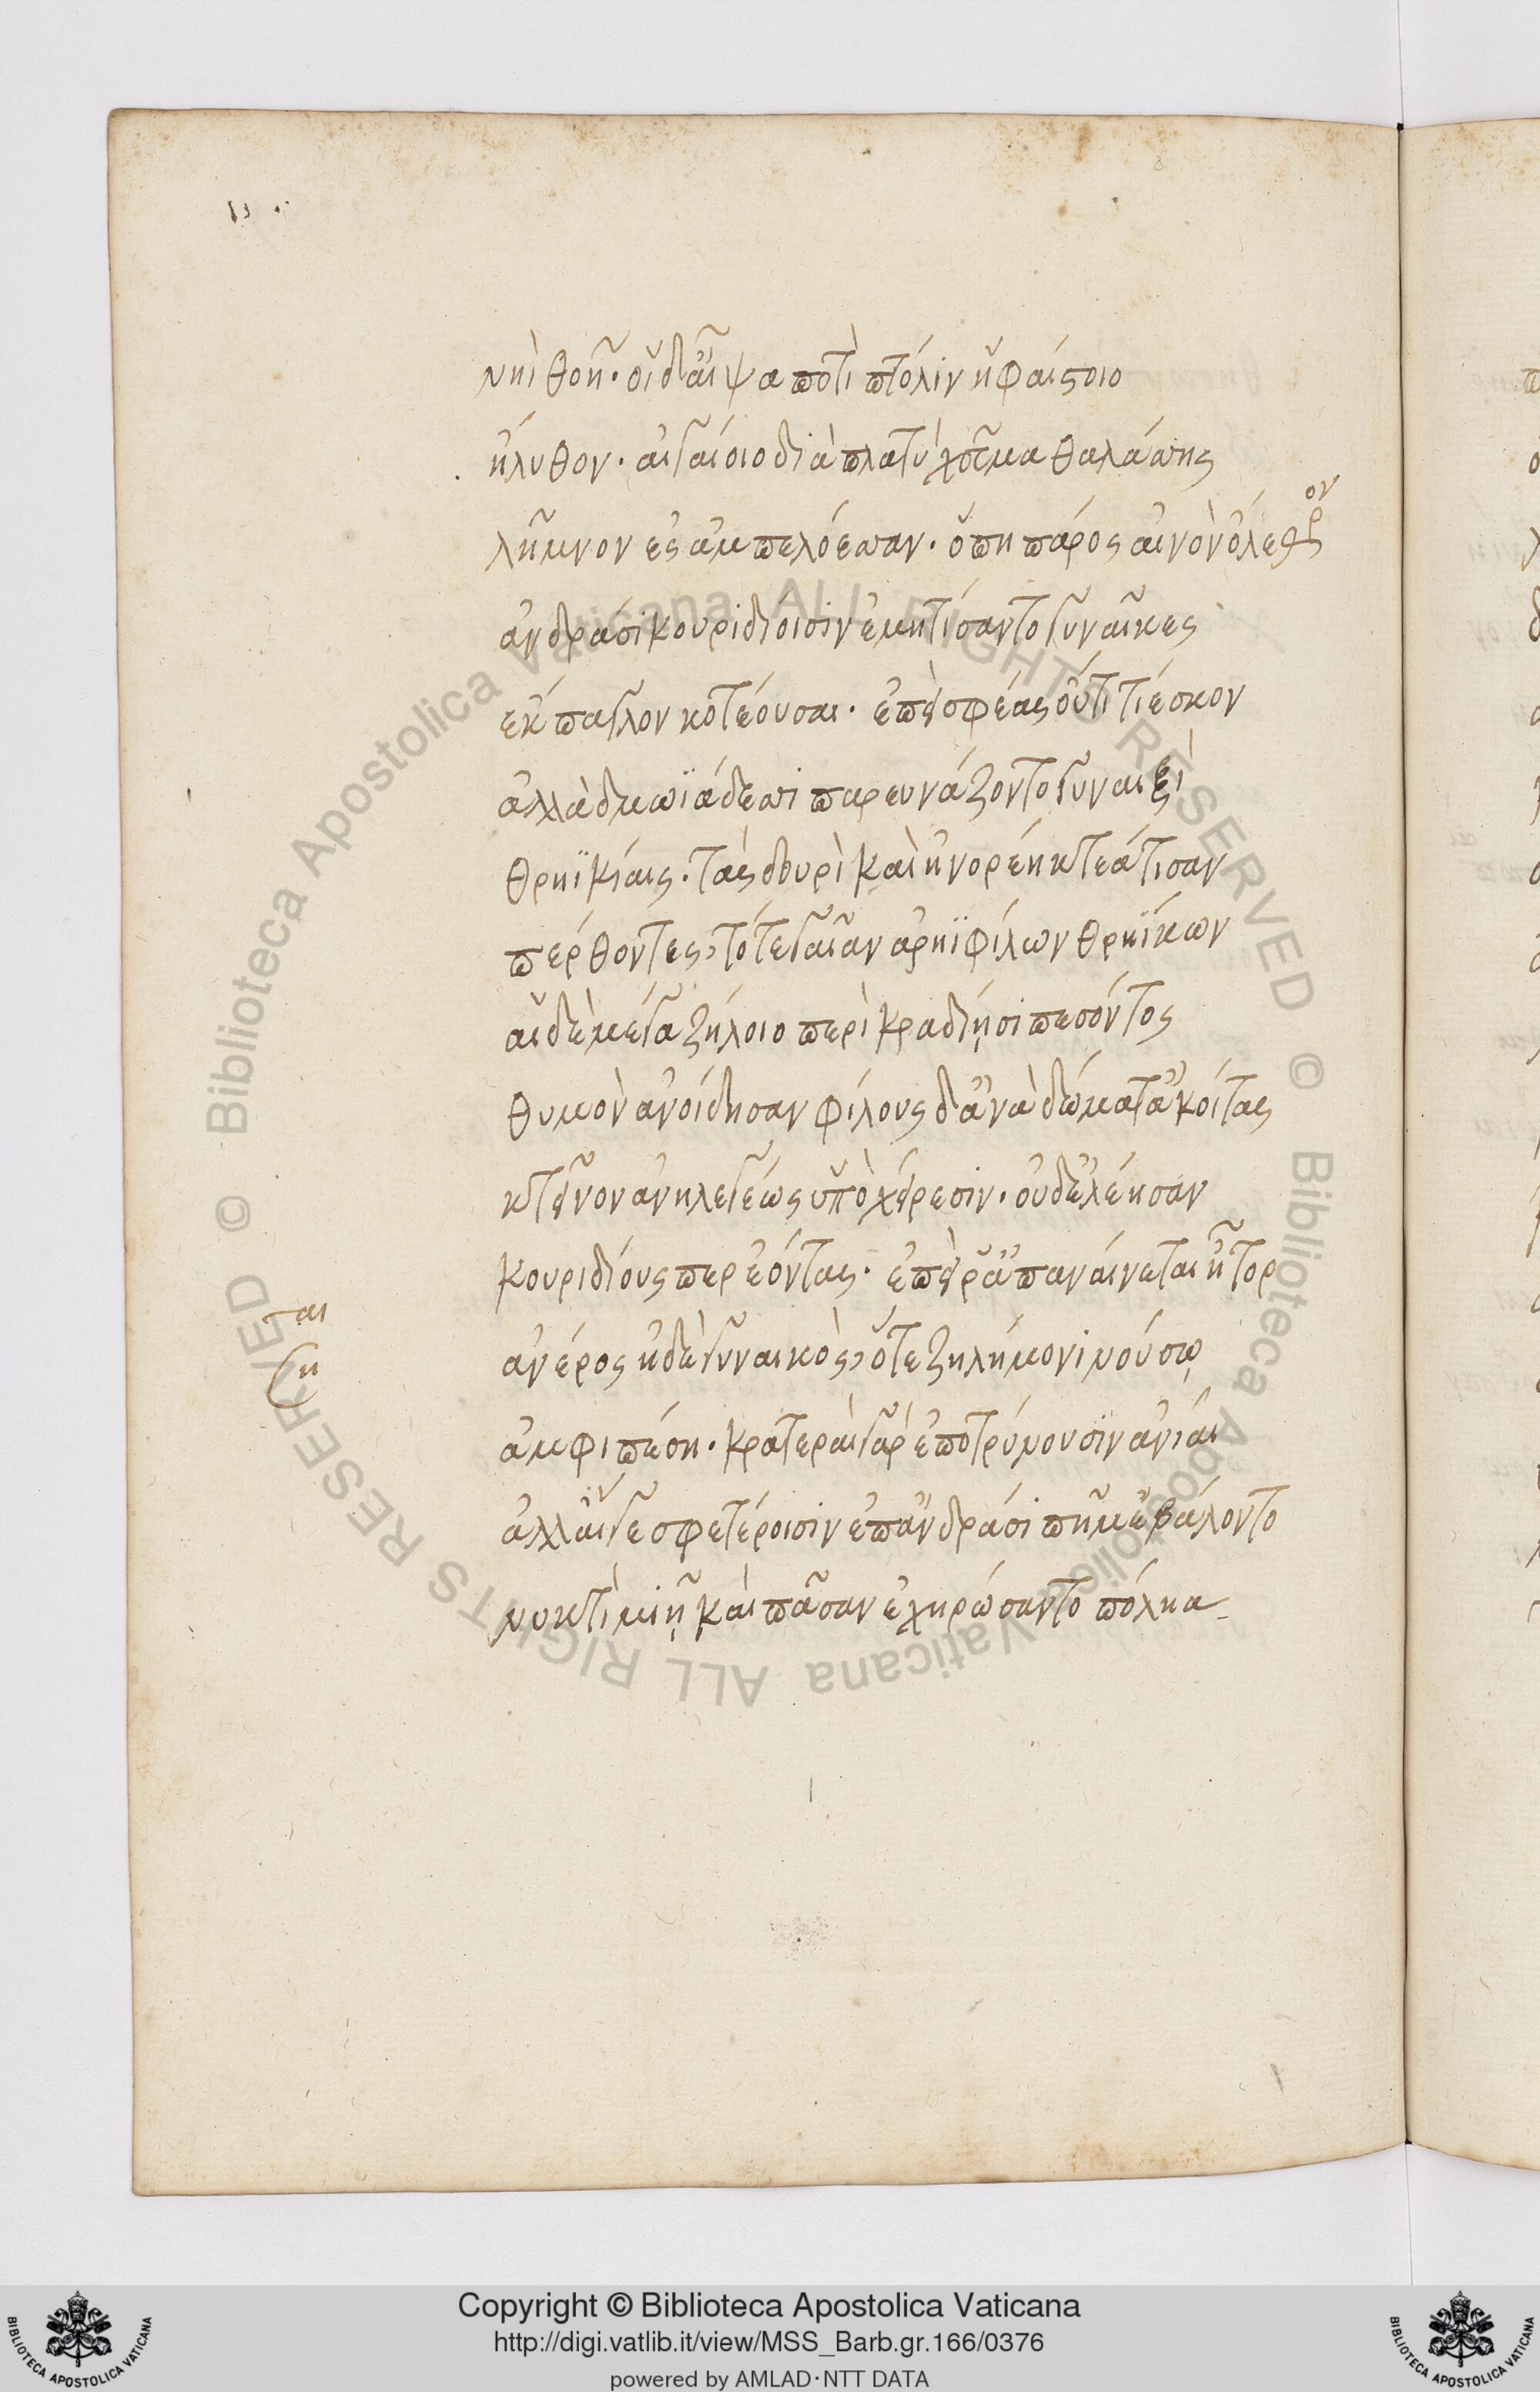 νηὶ θοῆ· οἳ δ' αἶψα ποτὶ πτόλιν ἡφαίστοιο
ἤλυθον· αἰγαίοιο διὰ πλατὺ χεῦμα θαλάσσης
λῆμνον ἐς ἀμπελόεσσαν· ὅπη πάρος αἰνὸν ὄλεθρον
ἀνδράσι κουριδίοισιν ἐμητίσαντο γυναῖκες
ἔκπαγλον κοτέουσαι· ἐπεὶ σφέας οὔτι τιέσκον
ἀλλὰ δμωϊάδεσσι παρευνάζοντο γυναιξὶ
θρηϊκίαις· τὰς δουρὶ καὶ ἠνορέη κτεάτισαν
πέρθοντες, τότε γαῖαν ἀρηϊφίλων θρηΐκων
αἳ δὲ μέγα ζήλοιο περὶ κραδίῃσι πεσόντος
θυμὸν ἀνοίδησαν φίλους δ' ἀνὰ δώματ' ἀκοίτας
κτεῖνον ἀνηλεγέως ὑπὸ χείρεσιν· οὐδ' ἐλέησαν
κουριδίους περ ἐόντας· ἐπεὶ ῥ' ἀπαναίνεται ἦτορ
ἀνέρος ἠδὲ γυναικὸς, ὅτε ζηλήμονι νούσῳ
ἀμφιπέση· κρατεραὶ γὰρ ἐποτρύνουσιν ἀνίαι
ἀλλ' αἵ γε σφετέροισιν ἐπ' ἀνδράσι πῆμ' ἐβάλοντο
νυκτὶ μιῇ καὶ πᾶσαν ἐχηρώσαντο πόληα
ται
η
Copyright © Biblioteca Apostolica Vaticana
http://digi.vatlib.it/view/MSS_Barb.gr.166/0376
powered by AMLAD·NTT DATA